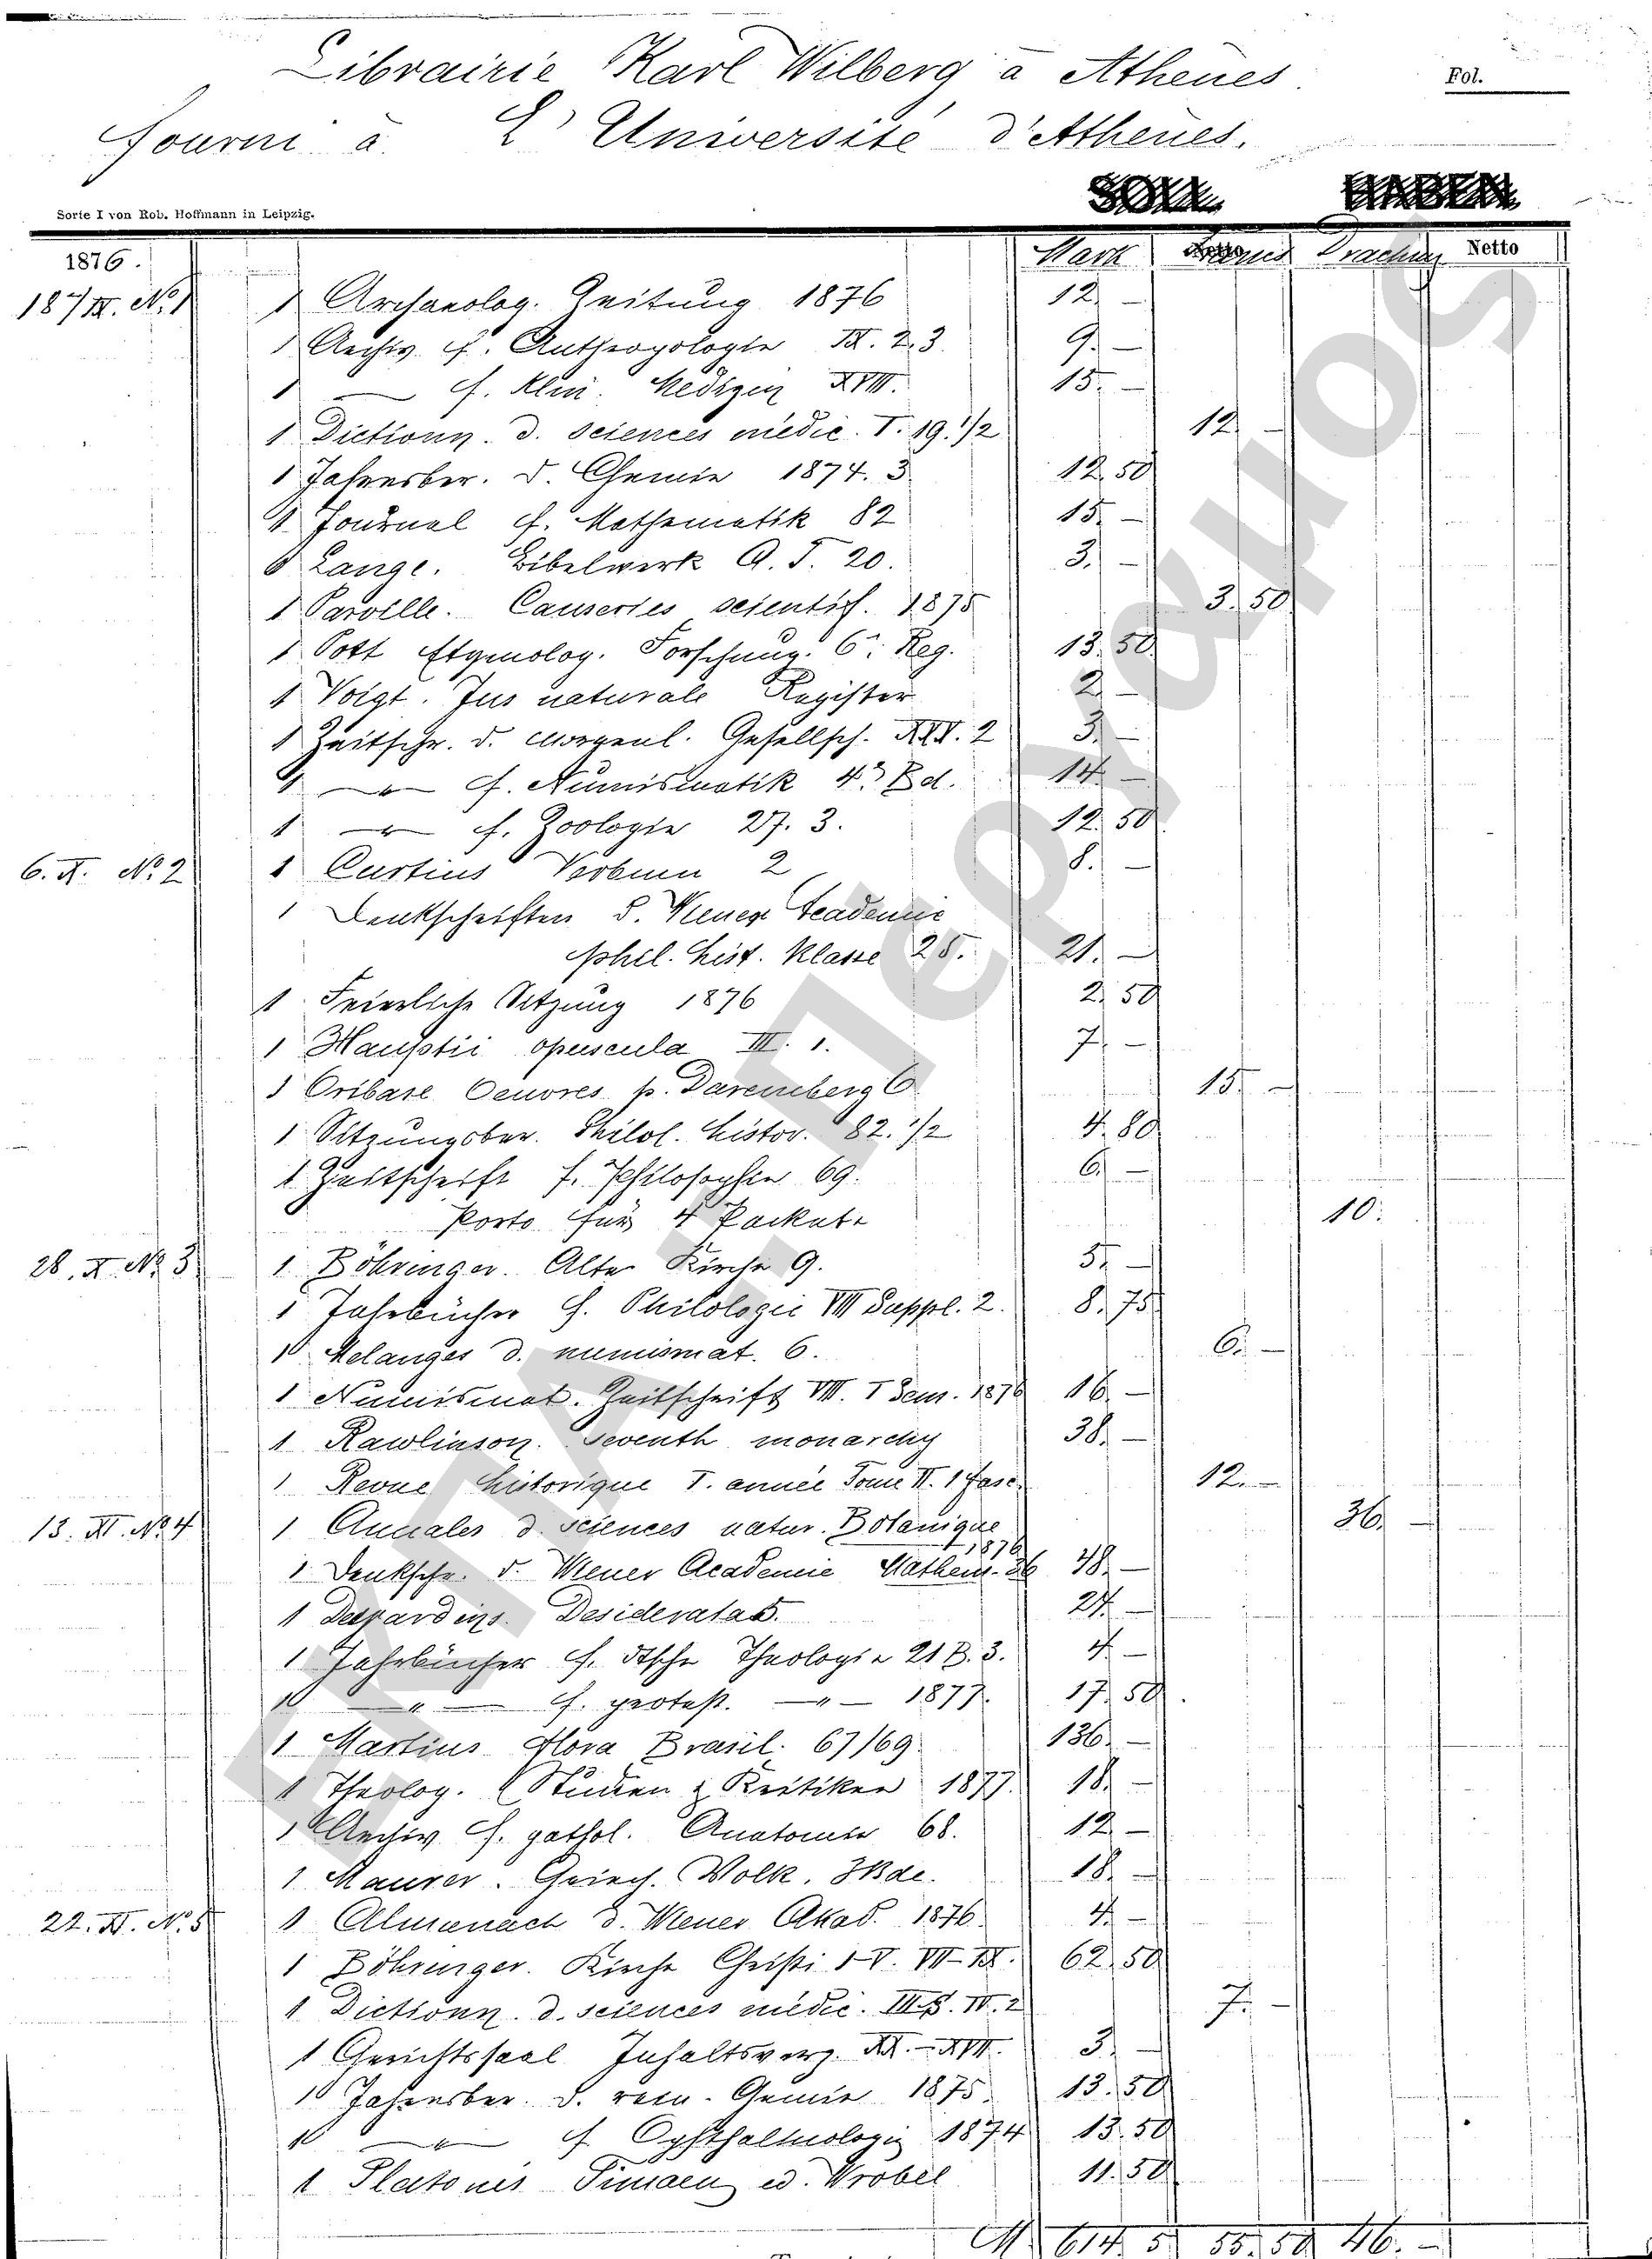 Librairie Karl Wilberg à Athènes.
Fol.
fourni à L'Université d'Athènes.
SOLL HABEN
Sorte I von Rob. Hoffmann in Leipzig.
1876. Mark Francs Drachm Netto
18/IX. No. 1 1 Archaeolog. Zeitung 1876 12. —
1 Archiv f. Anthropologie IX. 2.3. 9. —
1 — f. klin. Medizin XVIII. 15. —
1 Dictionn. d. sciences médic. T. 19. 1/2 12. —
1 Jahresber. d. Chemie 1874. 3 12. 50
1 Journal f. Mathematik 82 15. —
1 Lange. Bibelwerk A. T. 20. 3. —
1 Parville. Causeries scientif. 1875 3. 50
1 Pott Etymolog. Forschung. 6. Reg. 13. 50
1 Voigt. Jus naturale Register 2 —
1 Zeitschr. d. morgenl. Gesellsch. XXX. 2 3. —
1 —"— f. Numismatik 4. Bd. 14. —
1 —"— f. Zoologie 27. 3. 12. 50
6. X. No. 2 1 Curtius Verbum 2 8. —
1 Denkschriften d. Wiener Academie
phil. hist. Klasse 25. 21. —
1 Feierliche Sitzung 1876 2. 50
1 Hauptii opuscula III. 1. 7. —
1 Oribase Oeuvres p. Daremberg 6. 15. —
1 Sitzungsber. Philol. histor. 82. 1/2 4. 80
1 Zeitschrift f. Philosophie 69. 6. —
Porto für 4 Packete 10.
28. X. No. 3 1 Böhringer. Alte Kirche 9. 5. —
1 Jahrbücher f. Philologie VIII Suppl. 2. 8. 75
1 Melanges d. numismat. 6. 6. —
1 Numismat. Zeitschrift VIII. I Sem. 1876 16. —
1 Rawlinson. seventh monarchy 38. —
1 Revue historique I. année Tome II. 1 fasc. 12. —
13. XI. No. 4 1 Annales d. sciences natur. Botanique 1876 36. —
1 Denkschr. d. Wiener Academie Mathem. 36 48. —
1 Desjardins. Desiderata 5. 24. —
1 Jahrbücher f. dtsche Theologie 21 B. 3. 4. —
1 —"— f. protest. —"— 1877. 17. 50.
1 Martius Flora Brasil. 67/69. 136. —
1 Theolog. Studien & Kritiken 1877. 18. —
1 Archiv f. pathol. Anatomie 68. 12. —
1 Maurer. Griech. Volk. 3 Bde. 18. —
22. XI. No. 5 1 Almanach d. Wiener Akad. 1876. 4. —
1 Böhringer. Kirche Christi I-V. VII-IX. 62. 50
1 Dictionn. d. sciences médic. III. IV. 2 7. —
1 Gerichtssaal Inhaltsverz. 3. —
1 Jahresber. d. rein. Chemie 1875. 13. 50
1 —"— f. Ophthalmologie 1874 13. 50
1 Platonis Timaeus ed. Wrobel 11. 50
M 614. 5 55. 50 46. —
ΕΚΠΑ-Πέργαμος